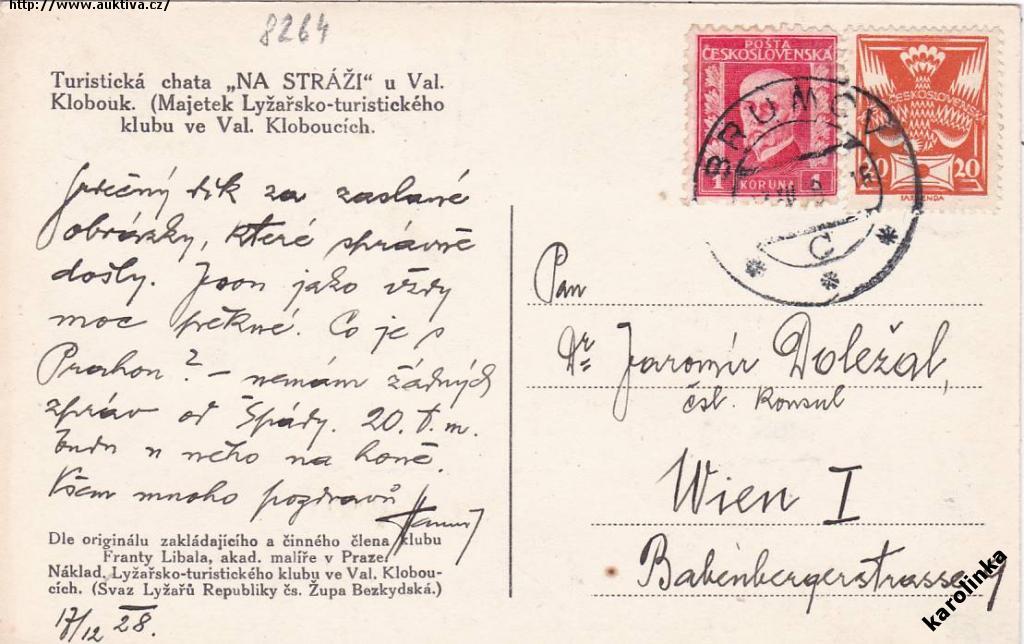 http://www.auktiva.cz/
8264
Turistická chata „NA STRÁŽI“ u Val.
Klobouk. (Majetek Lyžařsko-turistického
klubu ve Val. Kloboucích.
Srdečný dík za zaslané
obrázky, které správně
došly. Jsou jako vždy
moc pěkné. Co je s
Prahou? – nemám žádných
zpráv od Špády. 20. t. m.
budu u něho na honě.
Všem mnoho pozdravů
Dle originálu zakládajícího a činného člena klubu
Franty Libala, akad. malíře v Praze.
Náklad. Lyžařsko-turistického klubu ve Val. Klobou-
cích. (Svaz Lyžařů Republiky čs. Župa Bezkydská.)
17/12 28.
POŠTA
ČESKOSLOVENSKÁ
1 KORUNA 1
ČESKOSLOVENSKO
20 20
BRUMOV
C
Pan
Dr. Jaromír Doležal,
čsl. konsul
Wien I
Babenbergerstrasse 9
karolinka